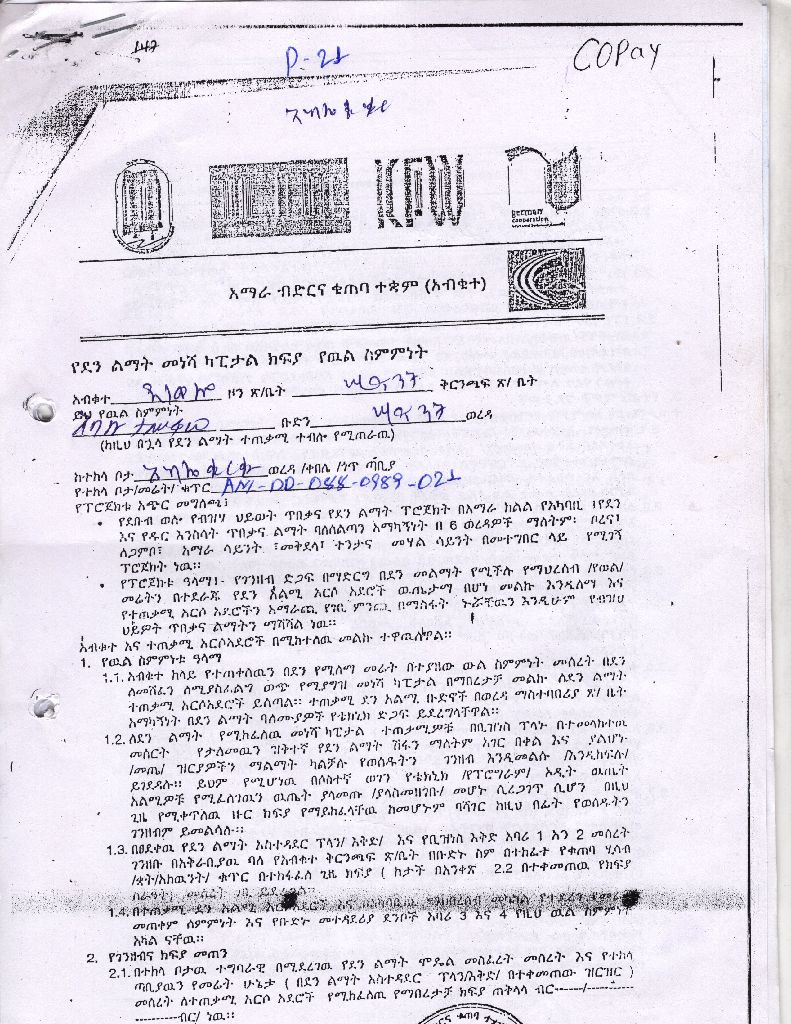 142
P-21
COPay
KFW
german
cooperation
አማራ ብድርና ቁጠባ ተቋም (አብቁተ)
የደን ልማት መነሻ ካፒታል ክፍያ የዉል ስምምነት
አብቁተ ዞን ጽ/ቤት ቅርንጫፍ ጽ/ ቤት
ይህ የዉል ስምምነት
ቡድን ወረዳ
(ከዚህ በኋላ የደን ልማት ተጠቃሚ ተብሎ የሚጠራዉ)
ከተከላ ቦታ ወረዳ /ቀበሌ /ጎጥ ጣቢያ
የተከላ ቦታ/መሬት/ ቁጥር AM-DD-088-0989-021
የፕሮጀክቱ አጭር መግለጫ፤
• የደቡብ ወሎ የብዝሃ ህይወት ጥበቃና የደን ልማት ፕሮጀክት በአማራ ክልል የአካባቢ ፣የደን
እና የዱር እንስሳት ጥበቃና ልማት ባለስልጣን አማካኝነት በ 6 ወረዳዎች ማለትም፡ ቦረና፣
ሊጋምቦ፣ አማራ ሳይንት ፣መቅደላ፣ ተንታና መሃል ሳይንት በመተግበር ላይ የሚገኝ
ፕሮጀክት ነዉ።
• የፕሮጀክቱ ዓላማ፤- የገንዘብ ድጋፍ በማድርግ በደን መልማት የሚችሉ የማህረሰብ /የወል/
መሬትን በተደራጁ የደን አልሚ አርሶ አደሮች ዉጤታማ በሆነ መልኩ እንዲለማ እና
የተጠቃሚ አርሶ አደሮችን አማራጪ የገቢ ምንጪ በማስፋት ኑሯቿዉን እንዲሁም የብዝሀ
ህይዎት ጥበቃና ልማትን ማሻሻል ነዉ።
አብቁተ እና ተጠቃሚ አርሶአደሮች በሚከተለዉ መልኩ ተዋዉለዋል።
1. የዉል ስምምነቱ ዓላማ
1.1. አብቁተ ከላይ የተጠቀሰዉን በደን የሚለማ መሬት በተያዘው ውል ስምምነት መሰረት በደን
ለመሸፈን ለሚያስፈልግ ወጭ የሚያግዝ መነሻ ካፒታል በማበረታቻ መልኩ ለደን ልማት
ተጠቃሚ አርሶአደሮች ይሰጣል። ተጠቃሚ ደን አልሚ ቡድኖች በወረዳ ማስተባበሪያ ጽ/ ቤት
አማካኝነት በደን ልማት ባለሙያዎች የቴክኒክ ድጋፍ ይደረግላቸዋል።
1.2. ለደን ልማት የሚከፈለዉ መነሻ ካፒታል ተጠቃሚዎቹ በቢዝነስ ፕላኑ በተመላከተዉ
መሰርት የታለመዉን ዝቅተኛ የደን ልማት ሽፋን ማለትም አገር በቀል እና ያልሆኑ
/መጤ/ ዝርያዎችን ማልማት ካልቻሉ የወሰዱትን ገንዘብ እንዲመልሱ /እንዲከፍሉ/
ይገደዳሉ። ይህም የሚሆነዉ በሶስተኛ ወገን የቴክኒክ /የፕሮግራም/ ኦዲት ዉጤት
አልሚዎቹ የሚፈለገዉን ዉጤት ያላመጡ /ያላስመዘገቡ/ መሆኑ ሲረጋገጥ ሲሆን በዚህ
ጊዜ የሚቀጥለዉ ዙር ክፍያ የማይከፈላቸዉ ከመሆኑም ባሻገር ከዚህ በፊት የወሰዱትን
ገንዘብም ይመልሳሉ።
1.3. በፀደቀዉ የደን ልማት አስተዳደር ፕላን/ እቅድ/ እና የቢዝነስ እቅድ አባሪ 1 እን 2 መሰረት
ገንዘቡ በአቅራቢያዉ ባለ የአብቁተ ቅርንጫፍ ጽ/ቤት በቡድኑ ስም በተከፈተ የቁጠባ ሂሳብ
/ቋት/አከዉንት/ ቁጥር በተከፋፈለ ጊዜ ክፍያ ( ከታች በአንቀጽ 2.2 በተቀመጠዉ የክፍያ
መሰረት ገቢ ይደረጋል።
1.4. በተጠቃሚ ደን አልሚ
መጠቀም ስምምነት እና የቡድኑ መተዳደሪያ ደንቦች አባሪ 3 እና 4 የዚህ ዉል ስምምነት
አካል ናቸዉ።
2. የገንዘብና ክፍያ መጠን
2.1. በተከላ ቦታዉ ተግባራዊ በሚደረገዉ የደን ልማት ሞዴል መስፈረት መሰረት እና የተከላ
ጣቢያዉን የመሬት ሁኔታ ( በደን ልማት አስተዳደር ፕላን/እቅድ/ በተቀመጠው ዝርዝር )
መሰረት ለተጠቃሚ አርሶ አደሮች የሚከፈለዉ የማበረታቻ ክፍያ ጠቅላላ ብር------/----------
----------ብር/ ነዉ።